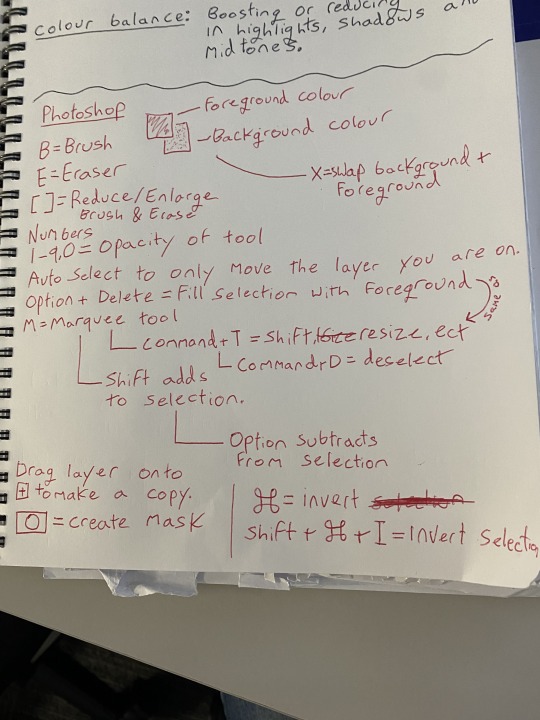 colour balance: Boosting or reducing
in highlights, shadows and
midtones.
Photoshop
Foreground colour
Background colour
X=swap background +
Foreground
B=Brush
E=Eraser
[ ]=Reduce/Enlarge
Brush & Erase
Numbers
1-9,0=Opacity of tool
Auto Select to only move the layer you are on.
Option + Delete = Fill selection with Foreground
same as
M=Marquee tool
Command+T = shift, resize, ect
Command+D = deselect
Shift adds
to selection.
Option subtracts
From selection
Drag layer onto
+ to make a copy.
O = create mask
⌘= invert selection
shift + ⌘ + I = invert selection